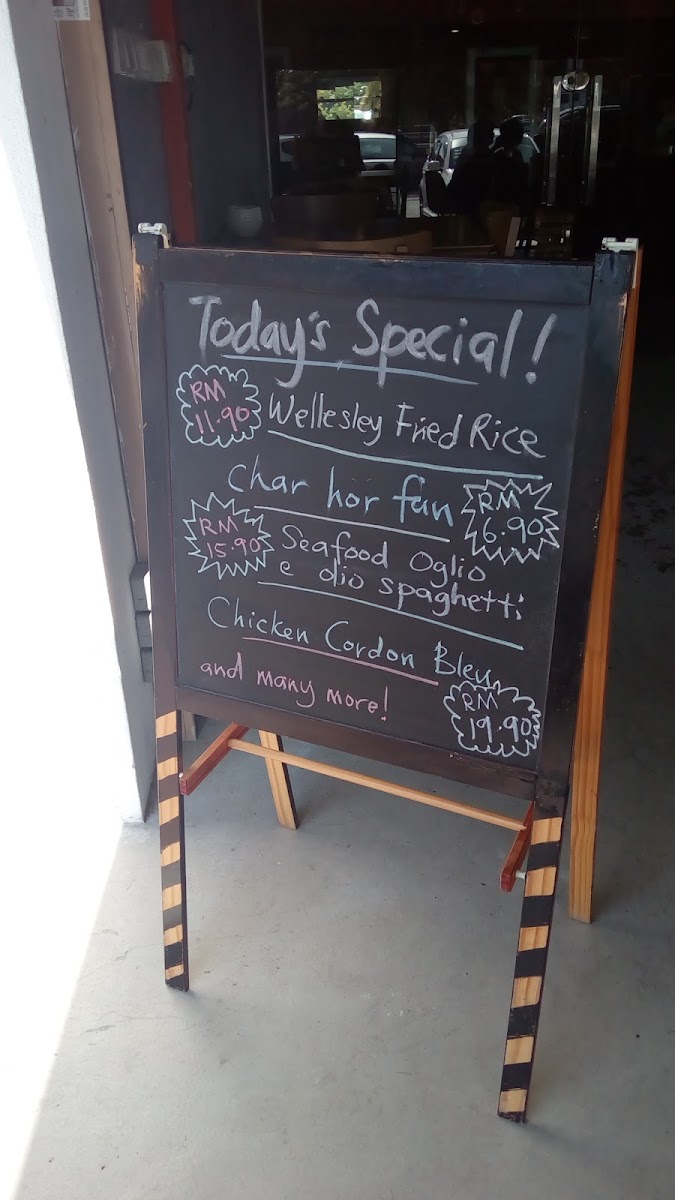 Today's Special!
RM
11.90
Wellesley Fried Rice
Char hor fun
RM
6.90
RM
15.90
Seafood Oglio
e olio spaghetti
Chicken Cordon Bleu
RM
19.90
and many more!